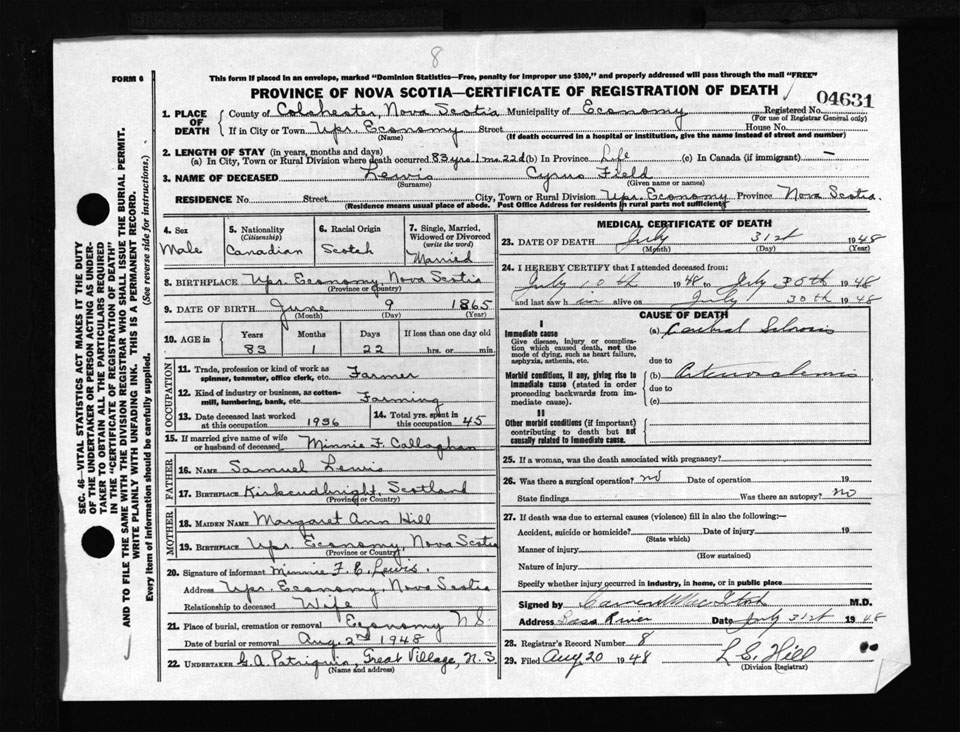 8
FORM 6
This form if placed in an envelope, marked "Dominion Statistics—Free, penalty for improper use $300," and properly addressed will pass through the mail "FREE"
PROVINCE OF NOVA SCOTIA—CERTIFICATE OF REGISTRATION OF DEATH
04631
1. PLACE OF DEATH
County of Colchester, Nova Scotia Municipality of Economy Registered No.
(For use of Registrar General only)
If in City or Town Upr. Economy Street House No.
(Name) (If death occurred in a hospital or institution, give the name instead of street and number)
2. LENGTH OF STAY (in years, months and days)
(a) In City, Town or Rural Division where death occurred 83 yrs. 1 ms. 22 d (b) In Province Life (c) In Canada (if immigrant) —
3. NAME OF DECEASED Lewis Cyrus Field
(Surname) (Given name or names)
RESIDENCE No. Street City, Town or Rural Division Upr. Economy Province Nova Scotia.
(Residence means usual place of abode. Post Office Address for residents in rural parts not sufficient)
4. Sex
Male
5. Nationality
(Citizenship)
Canadian
6. Racial Origin
Scotch
7. Single, Married, Widowed or Divorced
(write the word)
Married
8. BIRTHPLACE Upr. Economy, Nova Scotia
(Province or Country)
9. DATE OF BIRTH June 9 1865
(Month) (Day) (Year)
10. AGE in Years Months Days If less than one day old
83 1 22 hrs. or min.
OCCUPATION
11. Trade, profession or kind of work as
spinner, teamster, office clerk, etc. Farmer
12. Kind of industry or business, as cotton-
mill, lumbering, bank, etc. Farming
13. Date deceased last worked
at this occupation 1936
14. Total yrs. spent in
this occupation 45
15. If married give name of wife
or husband of deceased Minnie F. Callaghan
FATHER
16. NAME Samuel Lewis
17. BIRTHPLACE Kirkcudbright, Scotland
(Province or Country)
MOTHER
18. MAIDEN NAME Margaret Ann Hill
19. BIRTHPLACE Upr. Economy, Nova Scotia
(Province or Country)
20. Signature of informant Minnie F. C. Lewis.
Address Upr. Economy, Nova Scotia
Relationship to deceased Wife
21. Place of burial, cremation or removal Economy N.S.
Date of burial or removal Aug. 2nd 1948
22. UNDERTAKER G. A. Patriquin, Great Village, N. S.
(Name and address)
MEDICAL CERTIFICATE OF DEATH
23. DATE OF DEATH July 31st 1948
(Month) (Day) (Year)
24. I HEREBY CERTIFY that I attended deceased from:
July 10th 1948 to July 30th 1948
and last saw him alive on July 30th 1948
CAUSE OF DEATH
I
Immediate cause
Give disease, injury or complication which caused death, not the mode of dying, such as heart failure, asphyxia, asthenia, etc.
(a)
due to
Morbid conditions, if any, giving rise to immediate cause (stated in order proceeding backwards from immediate cause).
(b)
due to
(c)
II
Other morbid conditions (if important) contributing to death but not causally related to immediate cause.
25. If a woman, was the death associated with pregnancy?
26. Was there a surgical operation? no Date of operation 19
State findings Was there an autopsy? no
27. If death was due to external causes (violence) fill in also the following:—
Accident, suicide or homicide? Date of injury 19
(State which)
Manner of injury
(How sustained)
Nature of injury
Specify whether injury occurred in industry, in home, or in public place
Signed by M.D.
Address Bass River Date July 31st 1948
28. Registrar's Record Number 8
29. Filed Aug 20 1948 L S. Hill
(Division Registrar)
SEC. 46—VITAL STATISTICS ACT MAKES IT THE DUTY
OF THE UNDERTAKER OR PERSON ACTING AS UNDER-
TAKER TO OBTAIN ALL THE PARTICULARS REQUIRED
IN THE "CERTIFICATE OF REGISTRATION OF DEATH"
AND TO FILE THE SAME WITH THE DIVISION REGISTRAR WHO SHALL ISSUE THE BURIAL PERMIT.
WRITE PLAINLY WITH UNFADING INK. THIS IS A PERMANENT RECORD.
Every item of information should be carefully supplied. (See reverse side for instructions.)